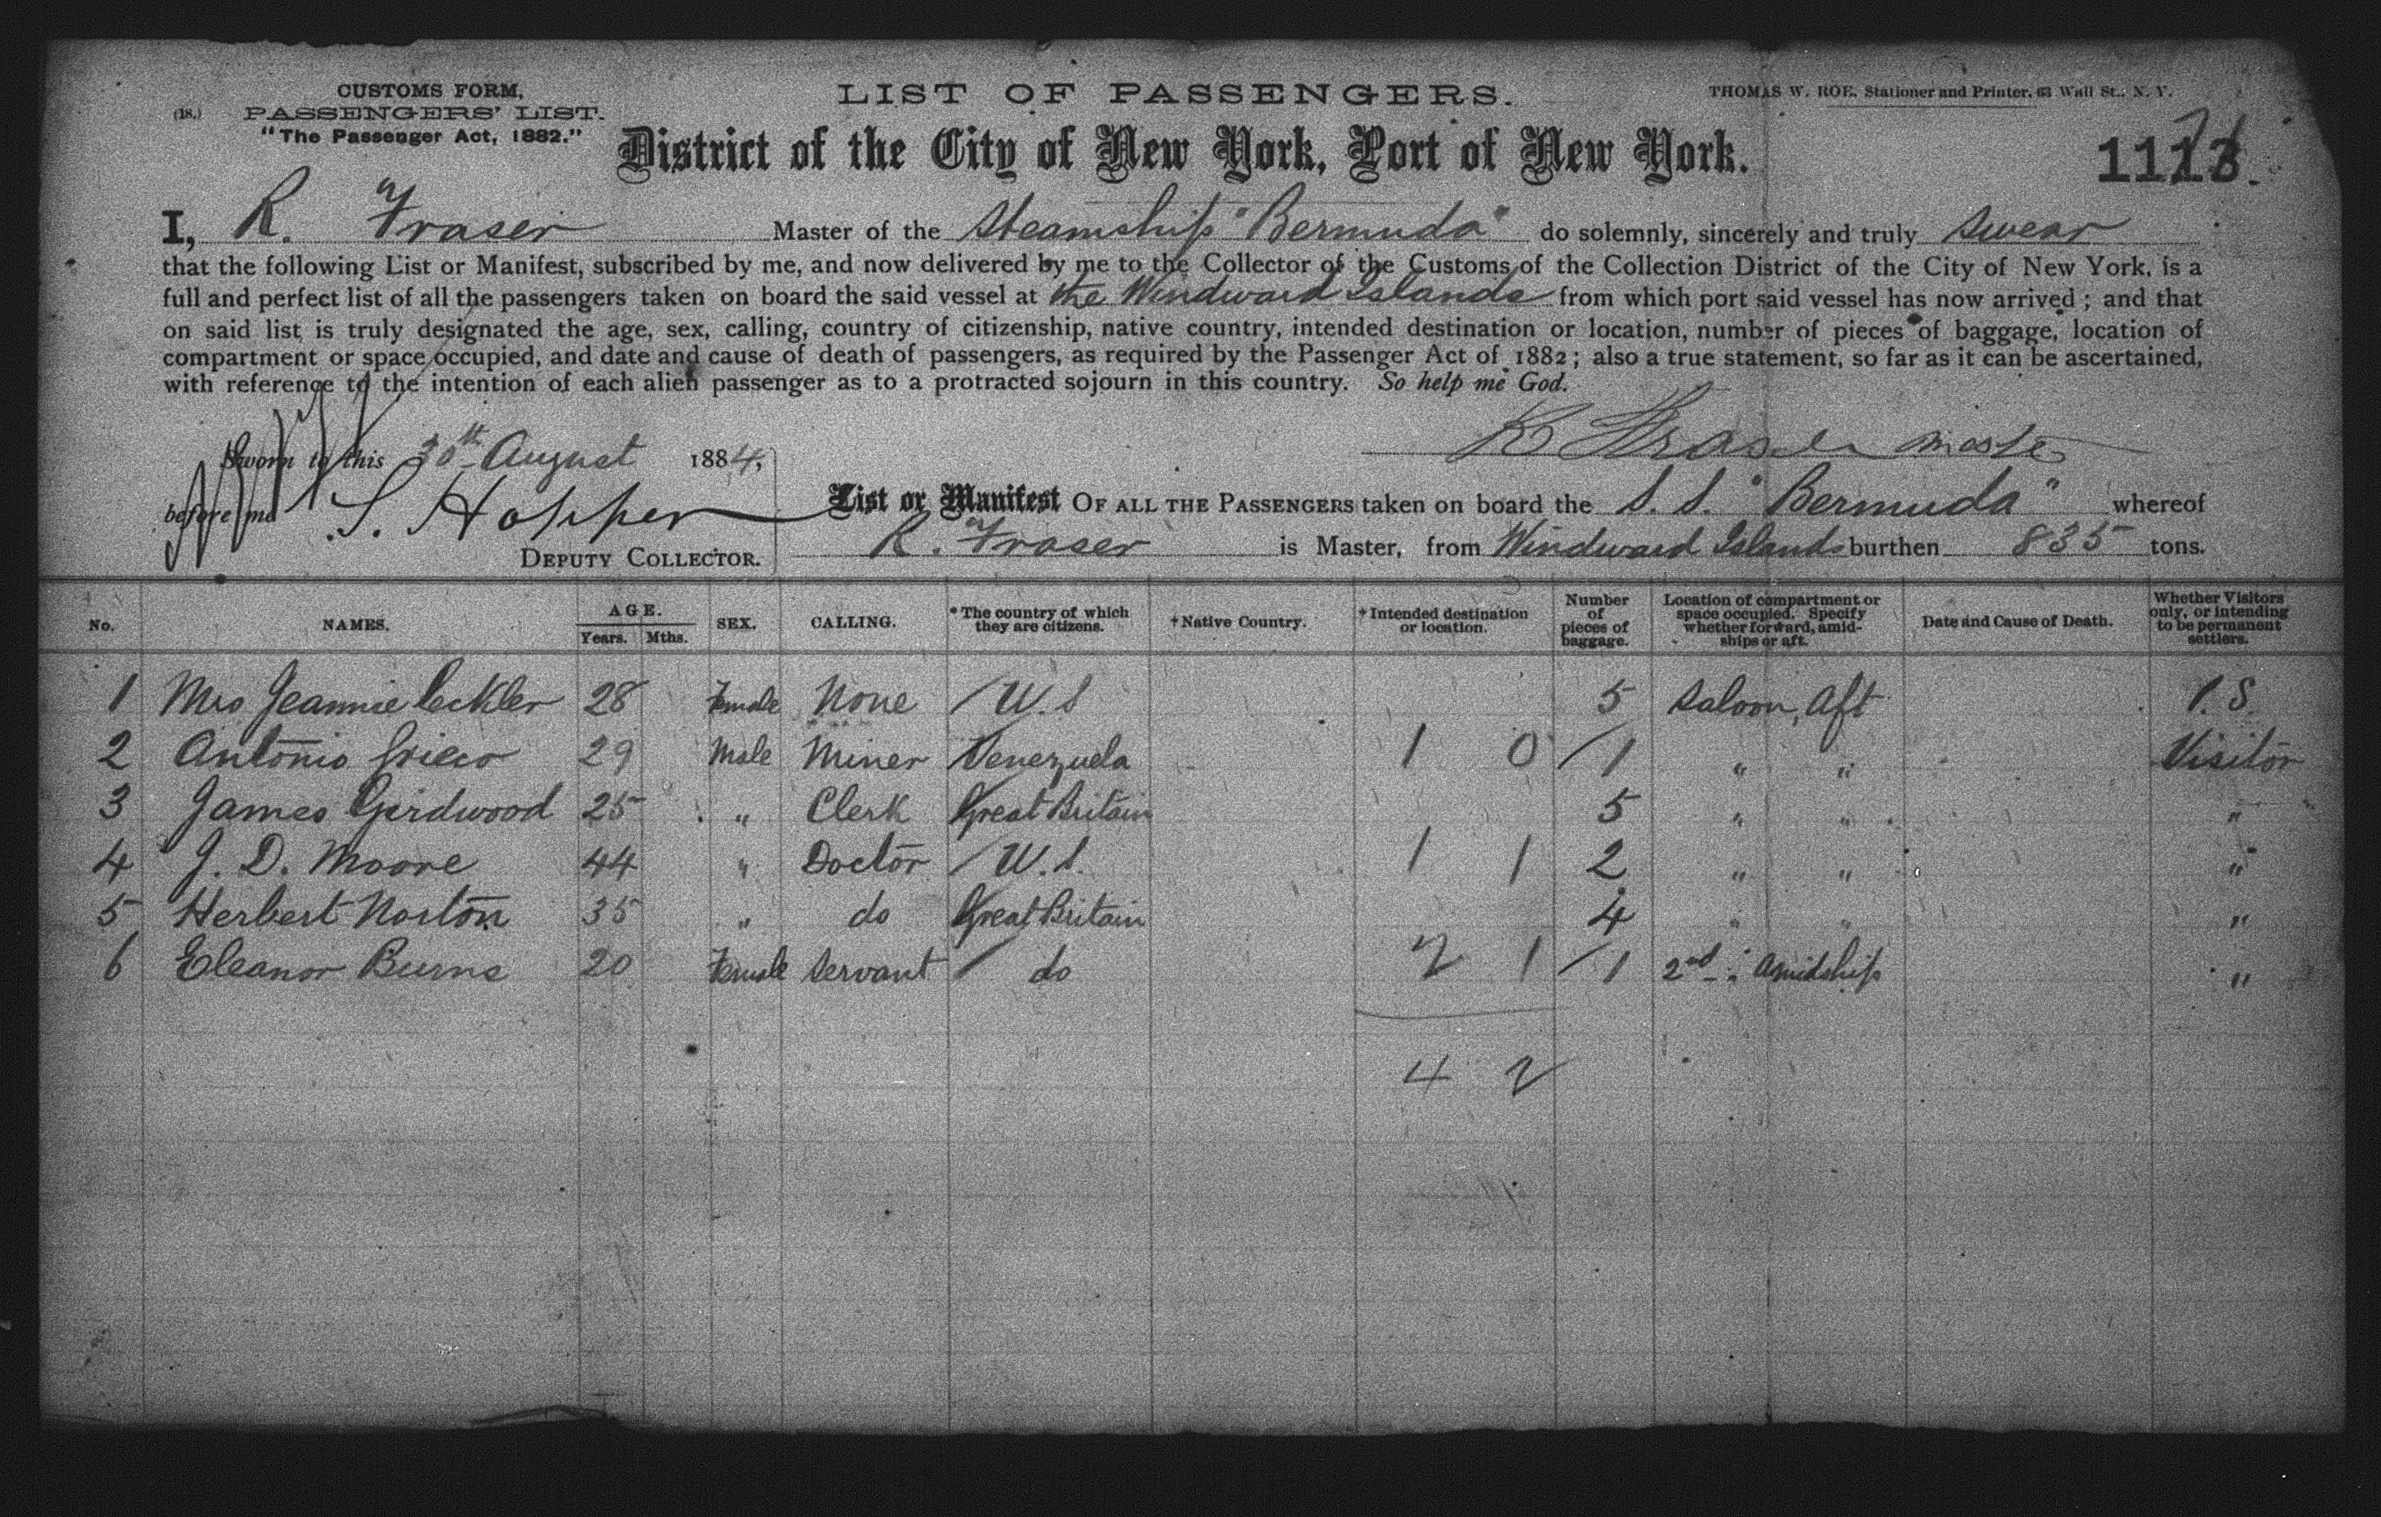 CUSTOMS FORM,
(18.) PASSENGERS' LIST.
"The Passenger Act, 1882."
LIST OF PASSENGERS.
THOMAS W. ROE, Stationer and Printer, 63 Wall St., N. Y.
District of the City of New York, Port of New York.
I, R. Fraser Master of the Steamship "Bermuda" do solemnly, sincerely and truly swear
that the following List or Manifest, subscribed by me, and now delivered by me to the Collector of the Customs of the Collection District of the City of New York, is a
full and perfect list of all the passengers taken on board the said vessel at the Windward Islands from which port said vessel has now arrived; and that
on said list is truly designated the age, sex, calling, country of citizenship, native country, intended destination or location, number of pieces of baggage, location of
compartment or space occupied, and date and cause of death of passengers, as required by the Passenger Act of 1882; also a true statement, so far as it can be ascertained,
with reference to the intention of each alien passenger as to a protracted sojourn in this country. So help me God.
R Fraser master
Sworn to this 30th August 1884,
before me S. Hopper
DEPUTY COLLECTOR.
List or Manifest OF ALL THE PASSENGERS taken on board the S. S. "Bermuda" whereof
R. Fraser is Master, from Windward Islands burthen 835 tons.
No. NAMES. AGE. Years. Mths. SEX. CALLING. *The country of which they are citizens. †Native Country. †Intended destination or location. Number of pieces of baggage. Location of compartment or space occupied. Specify whether forward, amidships or aft. Date and Cause of Death. Whether Visitors only, or intending to be permanent settlers.
1 Mrs Jeannie Eckler 28 Female None U.S 5 Saloon, Aft P.S.
2 Antonio Grieco 29 Male Miner Venezuela 1 0 1 " " Visitor
3 James Girdwood 25 " Clerk Great Britain 5 " " "
4 J. D. Moore 44 " Doctor U.S. 1 1 2 " " "
5 Herbert Norton 35 " do Great Britain 4 " " "
6 Eleanor Burns 20 Female Servant do 2 1 1 2nd " Amidship "
4 2